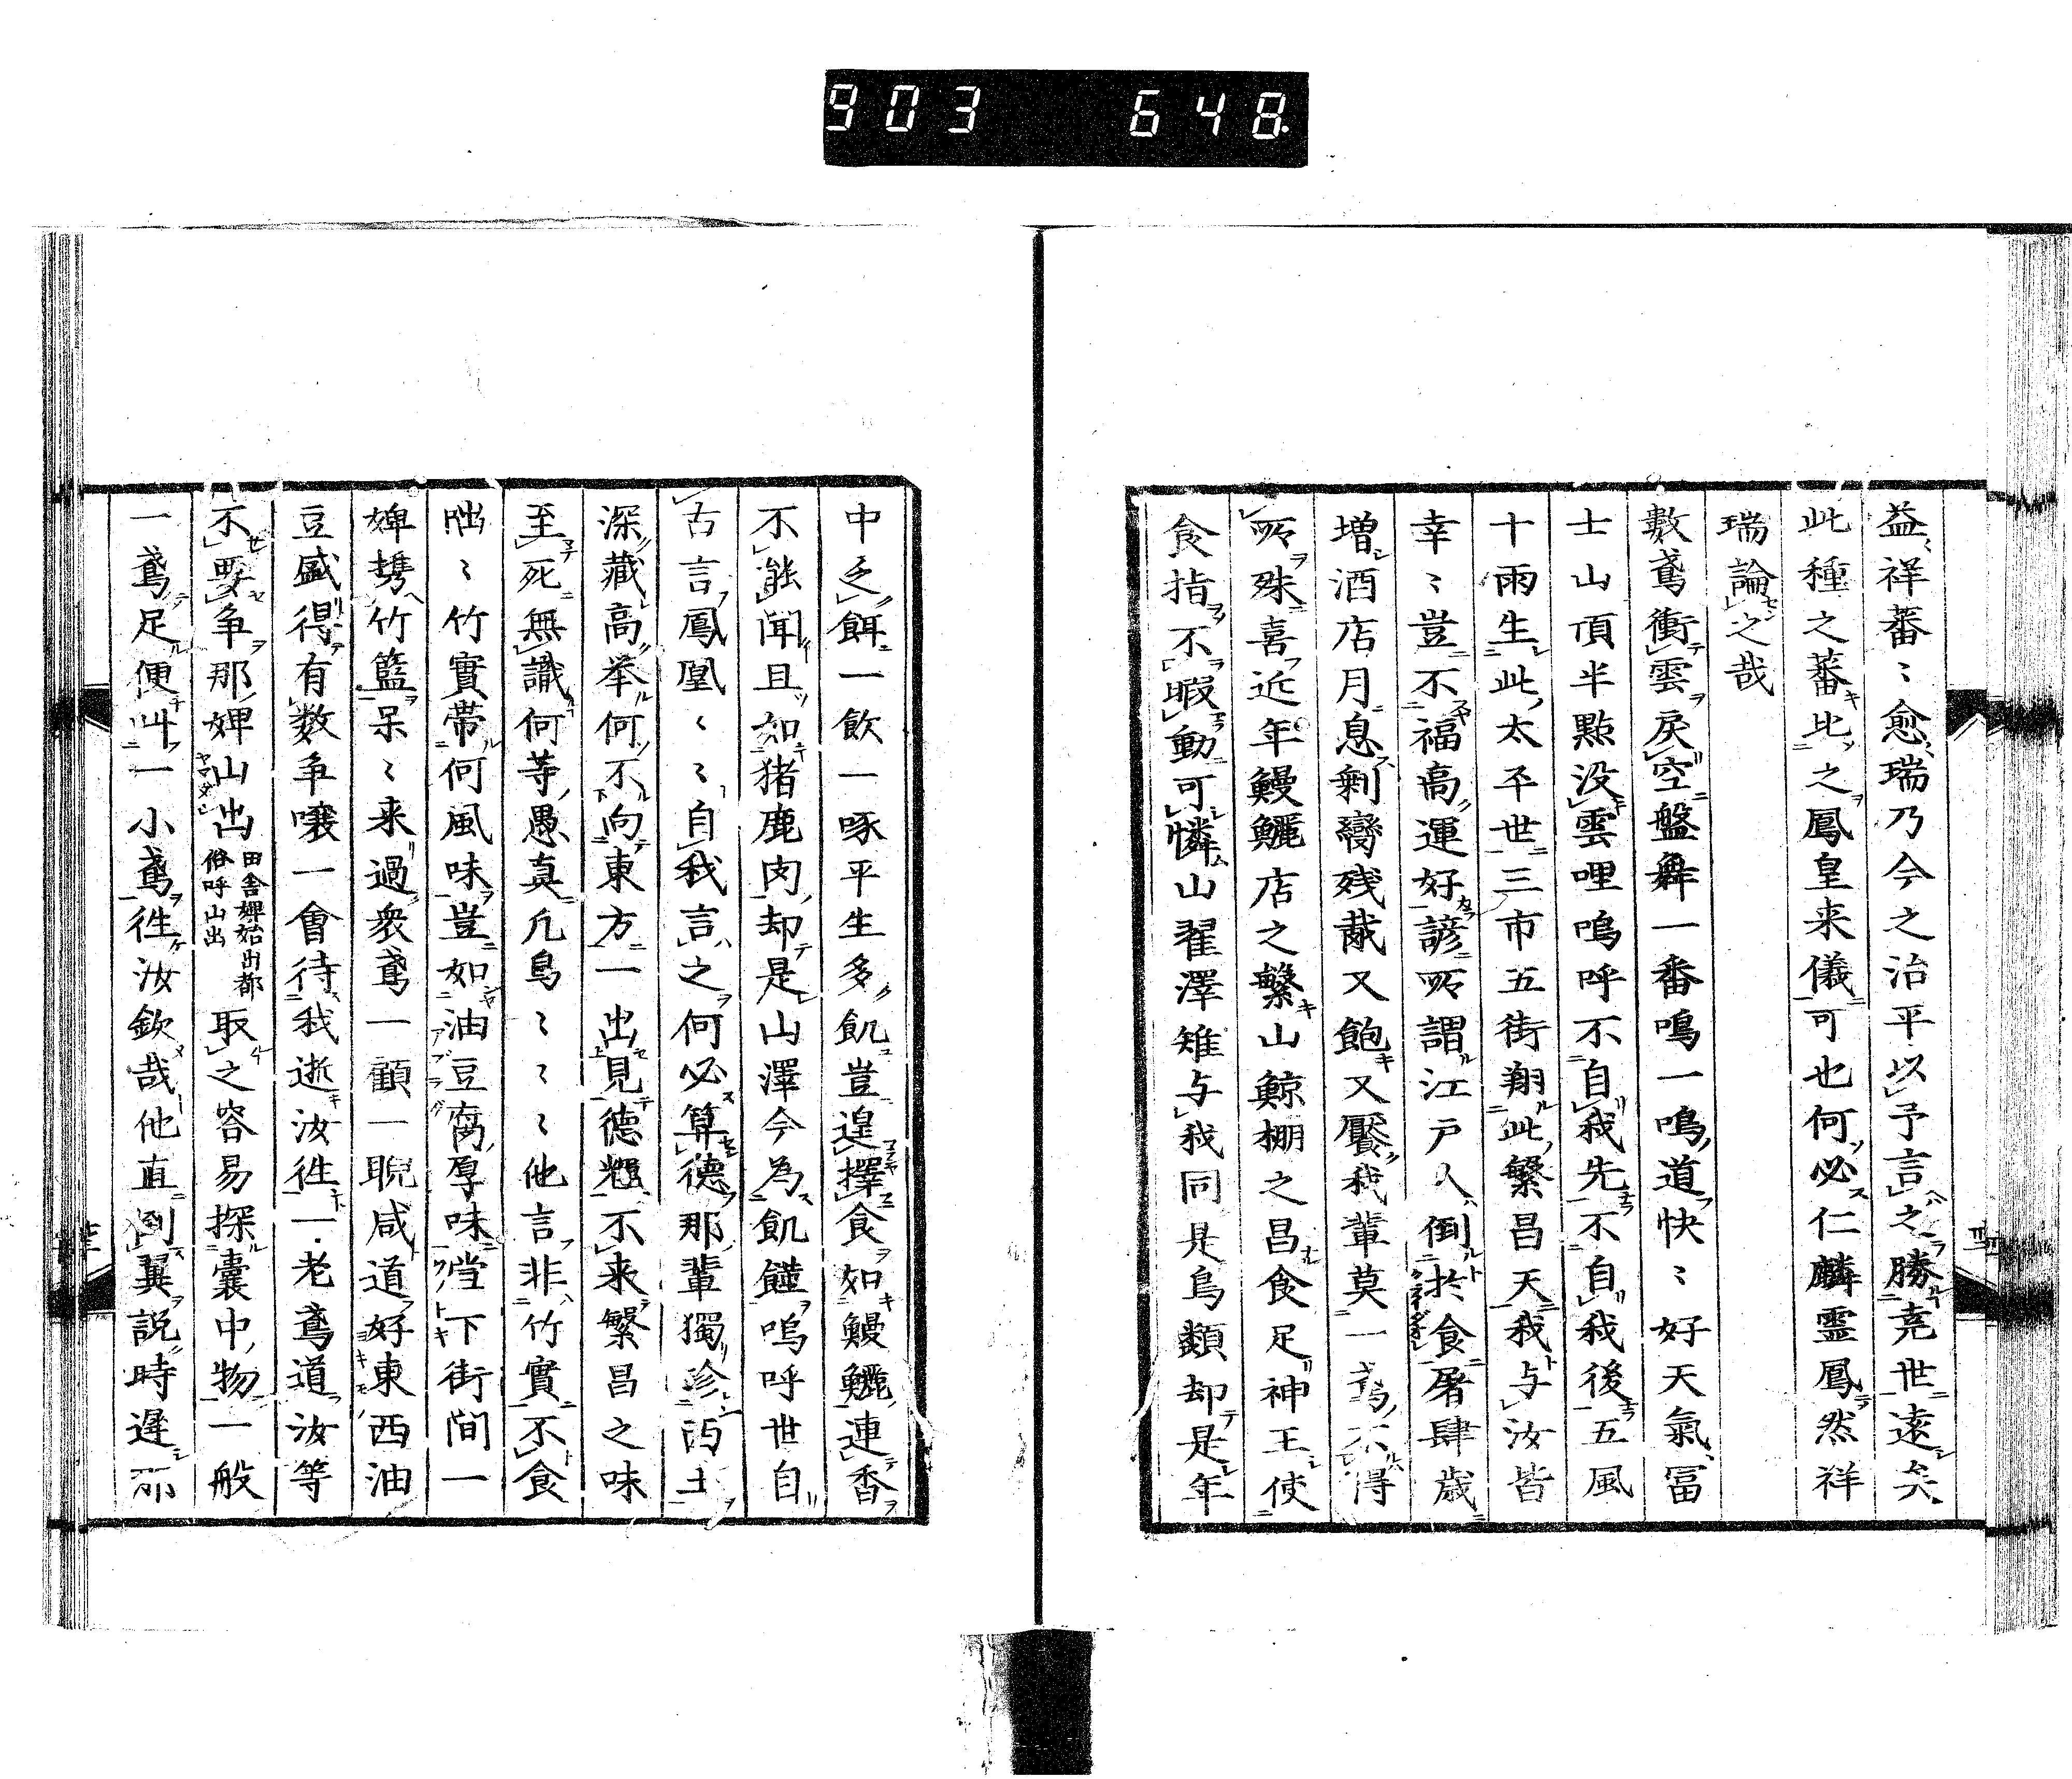 903 648
益祥蕃〻愈瑞乃今之治平以予言之勝尭世遠矣
此種之蕃比之鳳皇来儀可也何必仁麟霊鳳然祥
瑞論之哉
數鳶衝雲戻空盤舞一番鳴一鳴道快〻好天氣冨
士山頂半點没雲哩嗚呼不自我先不自我後五風
十雨生此太平世三市五街翔此繁昌天我与汝皆
幸〻豈不福高運好諺所謂江戸人倒於食屠肆歳
増酒店月息剰臠残胾又飽又饜我輩莫一為不得
所殊喜近年鰻鱺店之繁山鯨棚之昌食足神王使
食指不暇動可憐山翟澤雉与我同是鳥類却是年
中乏餌一飲一啄平生多飢豈遑擇食如鰻鱺連香
不能聞且如猪鹿肉却是山澤今為飢饉嗚呼世自
古言鳳凰〻〻自我言之何必算德那輩獨珍両土
深藏高举何不向東方一出見德輝不来繁昌之味
至死無識何等愚真凢鳥〻〻〻〻他言非竹實不食
咄〻竹實帶何風味豈如油豆腐厚味当下街間一
婢携竹籃呆〻来過衆鳶一顧一睨咸道好東西油
豆盛得有数争嚷一會待我逝汝徃一老鳶道汝等
不要争那婢山出
田舎婢始出都
俗呼山出
取之容易探囊中物一般
一鳶足便叫一小鳶徃汝欽哉他直到翼説時遲那